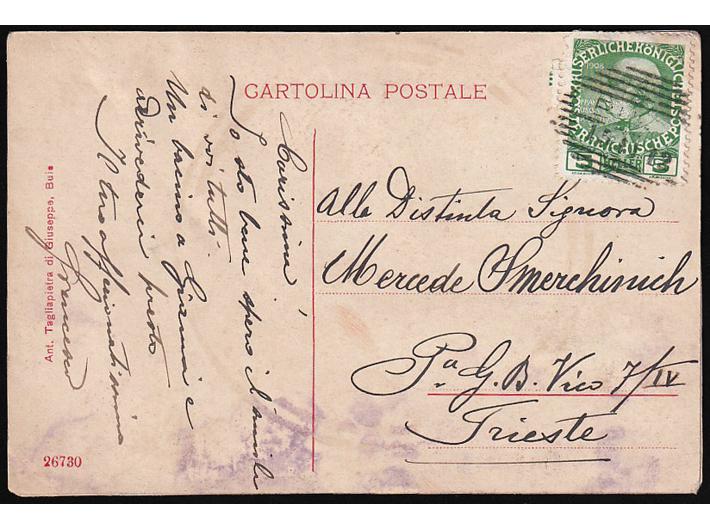 CARTOLINA POSTALE
Carissima!
Io sto bene spero il simile
di voi tutti.
Un bacino a Gianni e
arrivederci presto
Il tuo affezionatissimo
Francesco
KAISERLICHE KÖNIGLICHE
ÖSTERREICHISCHE POST
1908
Alla Distinta Signora
Mercede Smerchinich
Pa G. B. Vico 7/IV
Trieste
Ant. Tagliapietra di Giuseppe, Buie
26730